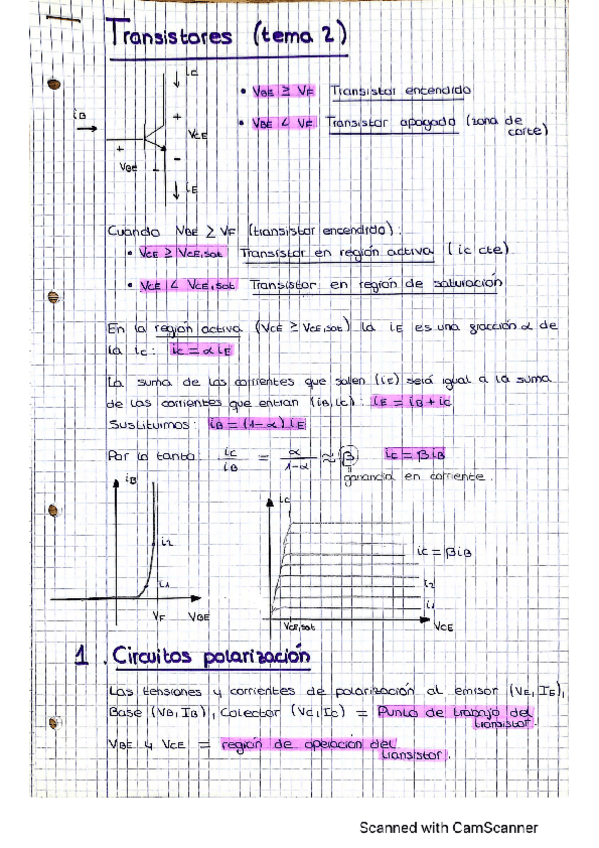 Transistores (tema 2)
iC
iB
+
VCE
-
+
VBE
-
iE
• VBE ≥ VF Transistor encendido
• VBE < VF Transistor apagado (zona de
corte)
Cuando VBE ≥ VF (transistor encendido):
• VCE ≥ VCE,sat Transistor en región activa (ic cte)
• VCE < VCE,sat Transistor en región de saturación
En la región activa (VCE ≥ VCE,sat) la iE es una fracción α de
la ic: ic = α iE
La suma de las corrientes que salen (iE) será igual a la suma
de las corrientes que entran (iB, ic): iE = iB + ic
Sustituimos: iB = (1-α) iE
Por lo tanto: ic/iB = α/1-α ≈ β ic = β iB
ganancia en corriente.
iB
i2
i1
VF VBE
ic
ic = β iB
i2
i1
VCE,sat VCE
1. Circuitos polarización
Las tensiones y corrientes de polarización al emisor (VE, IE),
Base (VB, IB), Colector (VC, IC) = Punto de trabajo del
transistor.
VBE y VCE = región de operación del
transistor.
Scanned with CamScanner